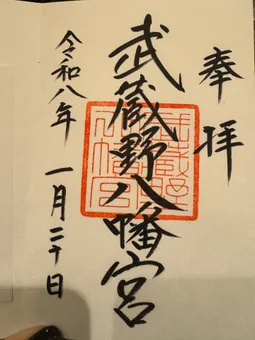 奉拝
武蔵野八幡宮
令和八年
一月二十日